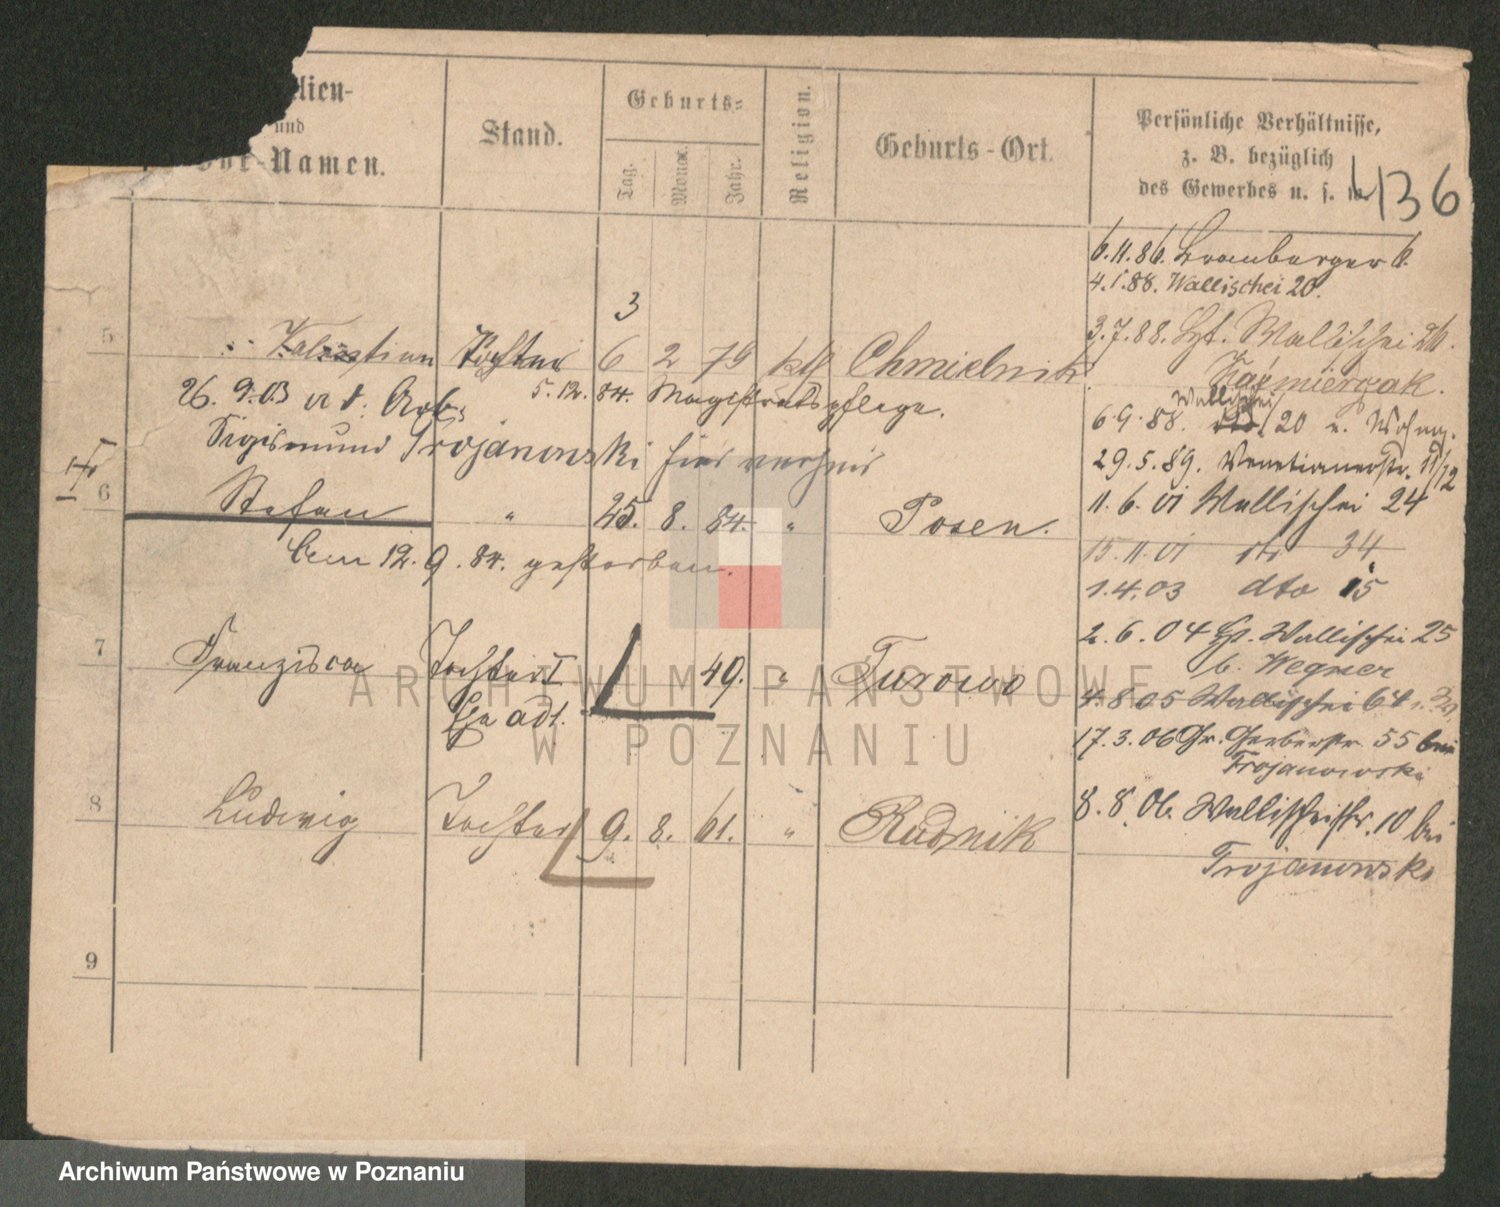 lien-
und
Vor-Namen.
Stand.
Geburts-
Tag.
Monat.
Jahr.
Religion.
Geburts-Ort.
Persönliche Verhältnisse,
z. B. bezüglich
des Gewerbes u. s. w.
136
6.11.86. Bromberger 6.
4.1.88. Wallischei 20.
3
3.7.88. Hpt. Wallischei 26.
5 Tochter 6 2 79 kth Chmielnik
Kazmierzak.
26. 9. 03 a. d. Arb. 5. 12. 84. Magistratspflege.
Wallischei
6.9.88. 20 b. Wohng.
Sigismund Trojanowski hier verheir
29.5.89. Venetianerstr. 11/12
6 Stefan " 25. 8. 84. " Posen.
11.6.01 Wallischei 24
Am 12. 9. 84. gestorben.
15.11.01 dto 34
1.4.03 dto 15
7 Franzisca Tochter 49. " Turowo
2.6.04 Hpt. Wallischei 25
b. Wegner
adl.
4.8.05 Wallischei 64
17.3.06 Gr. Gerberstr. 55 bei
Trojanowski
8 Ludwig Tochter 9. 8. 61. " Rudnik
8.8.06. Wallischeistr. 10 bei
Trojanowski
9
ARCHIWUM PAŃSTWOWE
W POZNANIU
Archiwum Państwowe w Poznaniu